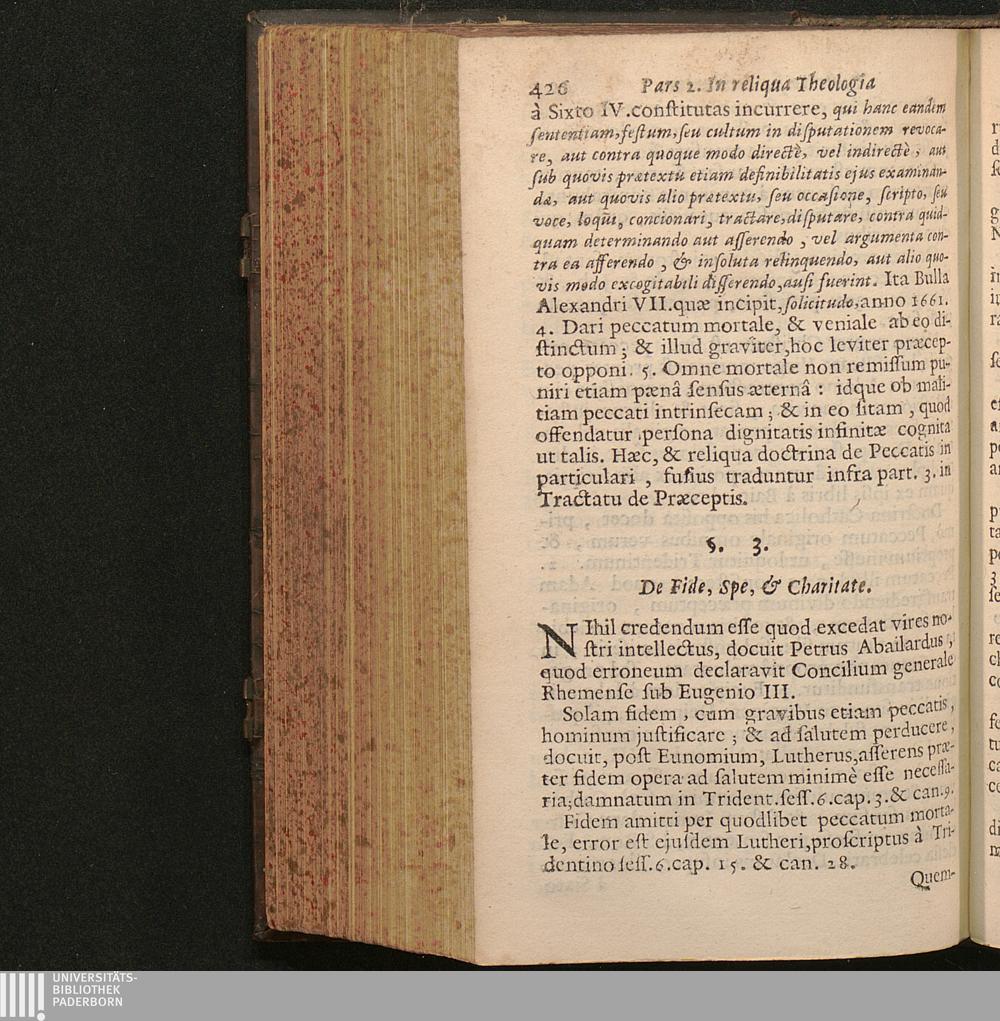 426 Pars 2. In reliqua Theologia
à Sixto IV.conſtitutas incurrere, qui hanc eandem
ſententiam,feſtum,ſeu cultum in diſputationem revoca-
re, aut contra quoque modo directè, vel indirectè, aut
ſub quovis prætextu etiam definibilitatis ejus examinan-
dæ, aut quovis alio prætextu, ſeu occaſione, ſcripto, ſeu
voce, loqui, concionari, tractare,diſputare, contra quid-
quam determinando aut aſſerendo, vel argumenta con-
tra ea afferendo, & inſoluta relinquendo, aut alio quo-
vis modo excogitabili diſſerendo,auſi fuerint. Ita Bulla
Alexandri VII.quæ incipit,ſolicitudo,anno 1661.
4. Dari peccatum mortale, & veniale ab eo di-
ſtinctum; & illud graviter,hoc leviter præcep-
to opponi. 5. Omne mortale non remiſſum pu-
niri etiam pænâ ſenſus æternâ : idque ob mali-
tiam peccati intrinſecam; & in eo ſitam, quod
offendatur perſona dignitatis infinitæ cognita
ut talis. Hæc, & reliqua doctrina de Peccatis in
particulari, fuſius traduntur infra part. 3. in
Tractatu de Præceptis.
§. 3.
De Fide, Spe, & Charitate.
NIhil credendum eſſe quod excedat vires no-
ſtri intellectus, docuit Petrus Abailardus,
quod erroneum declaravit Concilium generale
Rhemenſe ſub Eugenio III.
Solam fidem, cum gravibus etiam peccatis,
hominum juſtificare; & ad ſalutem perducere,
docuit, poſt Eunomium, Lutherus,aſſerens præ-
ter fidem opera ad ſalutem minimè eſſe neceſſa-
ria;damnatum in Trident.ſeſſ.6.cap.3.& can.9.
Fidem amitti per quodlibet peccatum morta-
le, error eſt ejuſdem Lutheri,proſcriptus à Tri-
dentino ſeſſ.6.cap. 15. & can. 28.
Quem-
UNIVERSITÄTS-
BIBLIOTHEK
PADERBORN